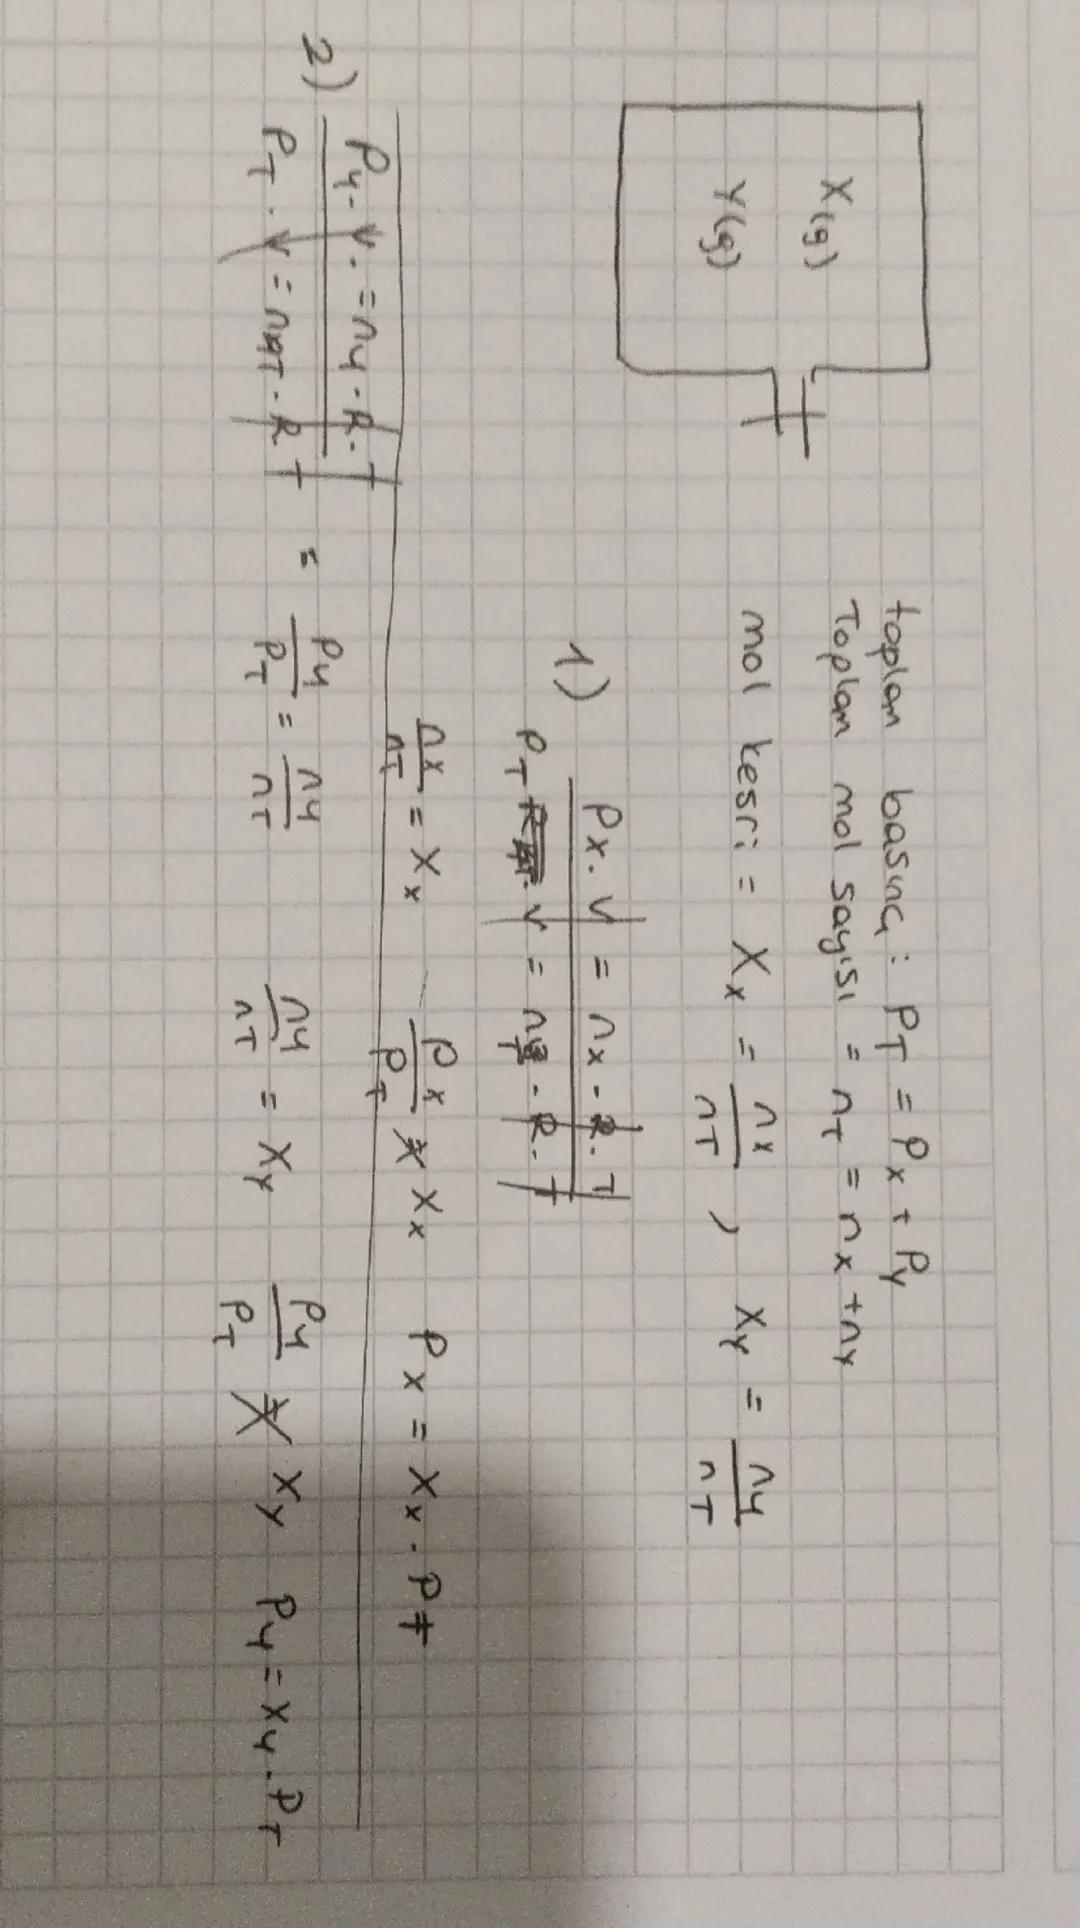 X(g)
Y(g)
toplam basınç : PT = Px + Py
Toplam mol sayısı = nT = nx + ny
mol kesri = Xx = nx/nT , Xy = ny/nT
1) Px . V = nx . R . T
PT . V = nT . R . T
nx/nT = Xx Px/PT Xx Px = Xx . PT
2) Py . V . = ny . R . T
PT . V = nT . R T = Py/PT = ny/nT ny/nT = Xy Py/PT Xy Py = Xy . PT